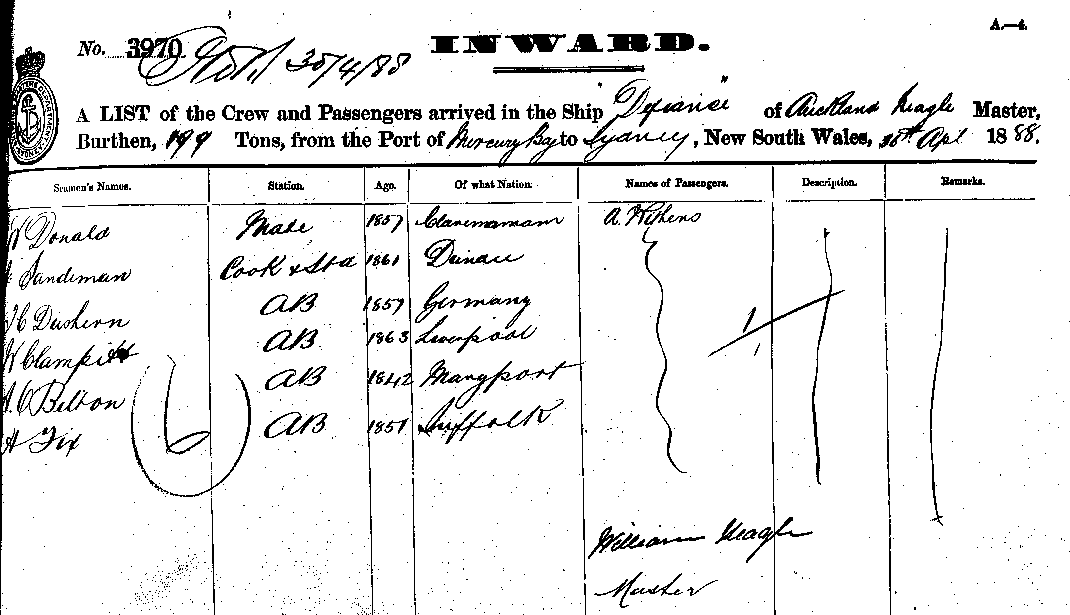 A.—4.
No. 3970 INWARD.
30/4/88
A LIST of the Crew and Passengers arrived in the Ship "Defiance" of Auckland Neagle Master,
Burthen, 199 Tons, from the Port of Mercury Bay to Sydney, New South Wales, 30th Apl 1888.
Seamen's Names. Station. Age. Of what Nation. Names of Passengers. Description. Remarks.
Donald Mate 1857
Sandeman Cook & Std 1861
AB 1857 Germany
AB 1863 Liverpool
Belton AB 1842 Maryport
Fix AB 1851 Suffolk
6
William Neagle
Master